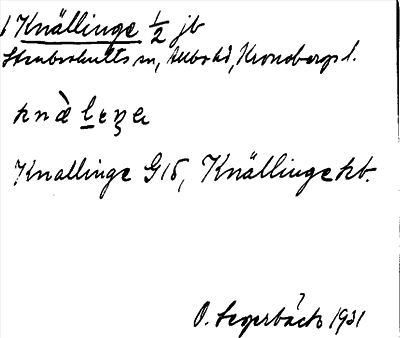 1 Knällinge 1/2 jb
Stenbrohults sn, Allbo hd, Kronobergs l.
knὰ lenga
Knallinge G15, Knällinge kb.
O. Segerbäck 1931